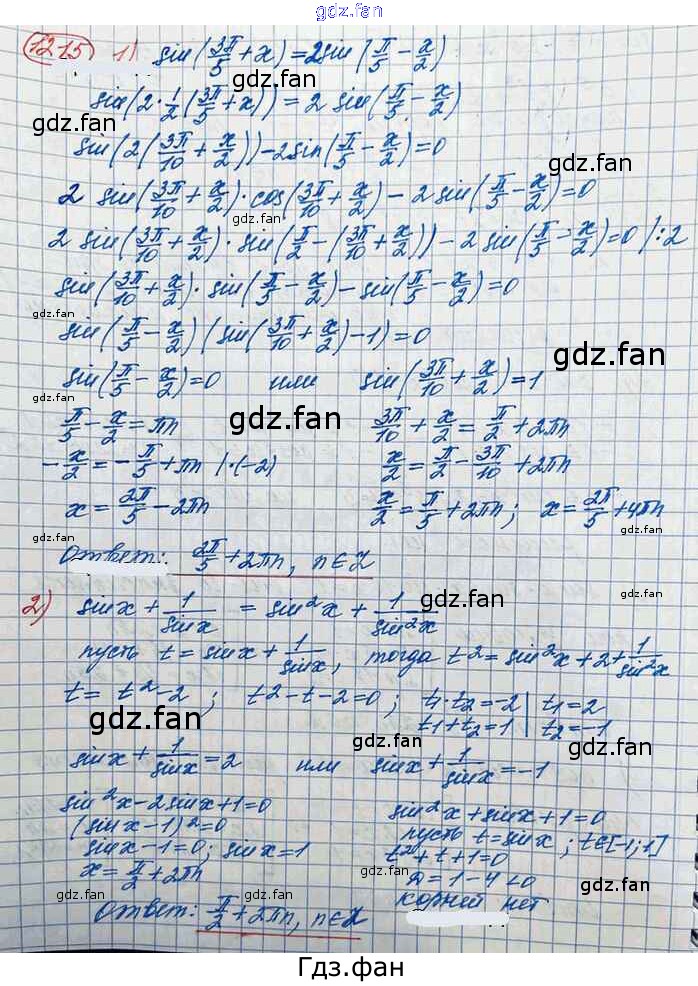 gdz.fan
1215 1) sin(3π/5 + x) = 2sin(π/5 − x/2)
sin(2·1/2(3π/5 + x)) = 2 sin(π/5 − x/2)
gdz.fan gdz.fan
sin(2(3π/10 + x/2)) − 2sin(π/5 − x/2) = 0
gdz.fan
2 sin(3π/10 + x/2)·cos(3π/10 + x/2) − 2 sin(π/5 − x/2) = 0
gdz.fan
2 sin(3π/10 + x/2)·sin(π/2 − (3π/10 + x/2)) − 2 sin(π/5 − x/2) = 0 |:2
sin(3π/10 + x/2)·sin(π/5 − x/2) − sin(π/5 − x/2) = 0
gdz.fan gdz.fan
sin(π/5 − x/2)(sin(3π/10 + x/2) − 1) = 0
gdz.fan
sin(π/5 − x/2) = 0 или sin(3π/10 + x/2) = 1
gdz.fan gdz.fan
π/5 − x/2 = πn 3π/10 + x/2 = π/2 + 2πn
gdz.fan
−x/2 = −π/5 + πn |·(−2) x/2 = π/2 − 3π/10 + 2πn
x = 2π/5 − 2πn x/2 = π/5 + 2πn; x = 2π/5 + 4πn
gdz.fan gdz.fan
Ответ: 2π/5 + 2πn, n∈Z
gdz.fan
2) sinx + 1/sinx = sin²x + 1/sin²x
gdz.fan
пусть t = sinx + 1/sinx, тогда t² = sin²x + 2 + 1/sin²x
t = t² − 2; t² − t − 2 = 0; t₁·t₂ = −2 | t₁ = 2
t₁ + t₂ = 1 | t₂ = −1
gdz.fan gdz.fan
sinx + 1/sinx = 2 или sinx + 1/sinx = −1
sin²x − 2sinx + 1 = 0 sin²x + sinx + 1 = 0
gdz.fan
(sinx − 1)² = 0 пусть t = sinx; t∈[−1;1]
gdz.fan
sinx − 1 = 0; sinx = 1 t² + t + 1 = 0
x = π/2 + 2πn D = 1 − 4 < 0
gdz.fan gdz.fan
корней нет
Ответ: π/2 + 2πn, n∈Z
Гдз.фан